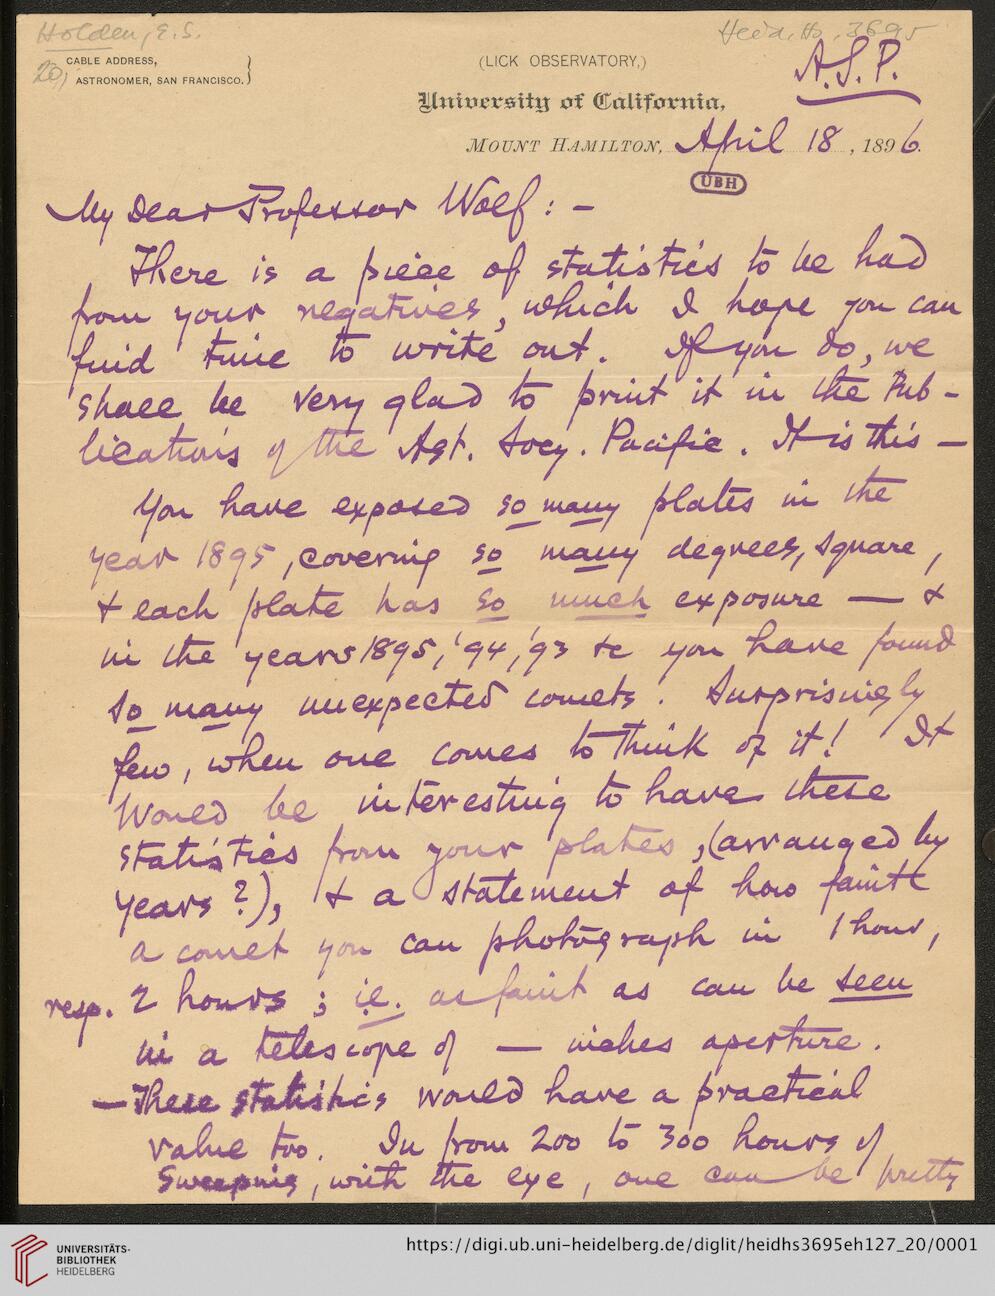 Holden, E.S.
Heid. Hs. 3695
20,
CABLE ADDRESS,
ASTRONOMER, SAN FRANCISCO. }
(LICK OBSERVATORY,)
A.S.P.
University of California,
MOUNT HAMILTON, April 18, 1896.
UBH
My Dear Professor Wolf : -
There is a piece of statistics to be had
from your negatives, which I hope you can
find time to write out. If you do, we
shall be very glad to print it in the Pub-
lications of the Ast. Socy. Pacific. It is this —
You have exposed so many plates in the
year 1895, covering so many degrees, square,
& each plate has so much exposure — &
in the years 1895, '94, '93 &c you have found
so many unexpected comets. Surprisingly
few, when one comes to think of it! It
would be interesting to have these
statistics from your plates, (arranged by
years?), & a statement of how faint
a comet you can photograph in 1 hour,
resp. 2 hours ; i.e. as faint as can be seen
in a telescope of — inches aperture.
— These statistics would have a practical
value too. In from 200 to 300 hours of
sweeping, with the eye, one can be pretty
UNIVERSITÄTS-
BIBLIOTHEK
HEIDELBERG
https://digi.ub.uni-heidelberg.de/diglit/heidhs3695eh127_20/0001